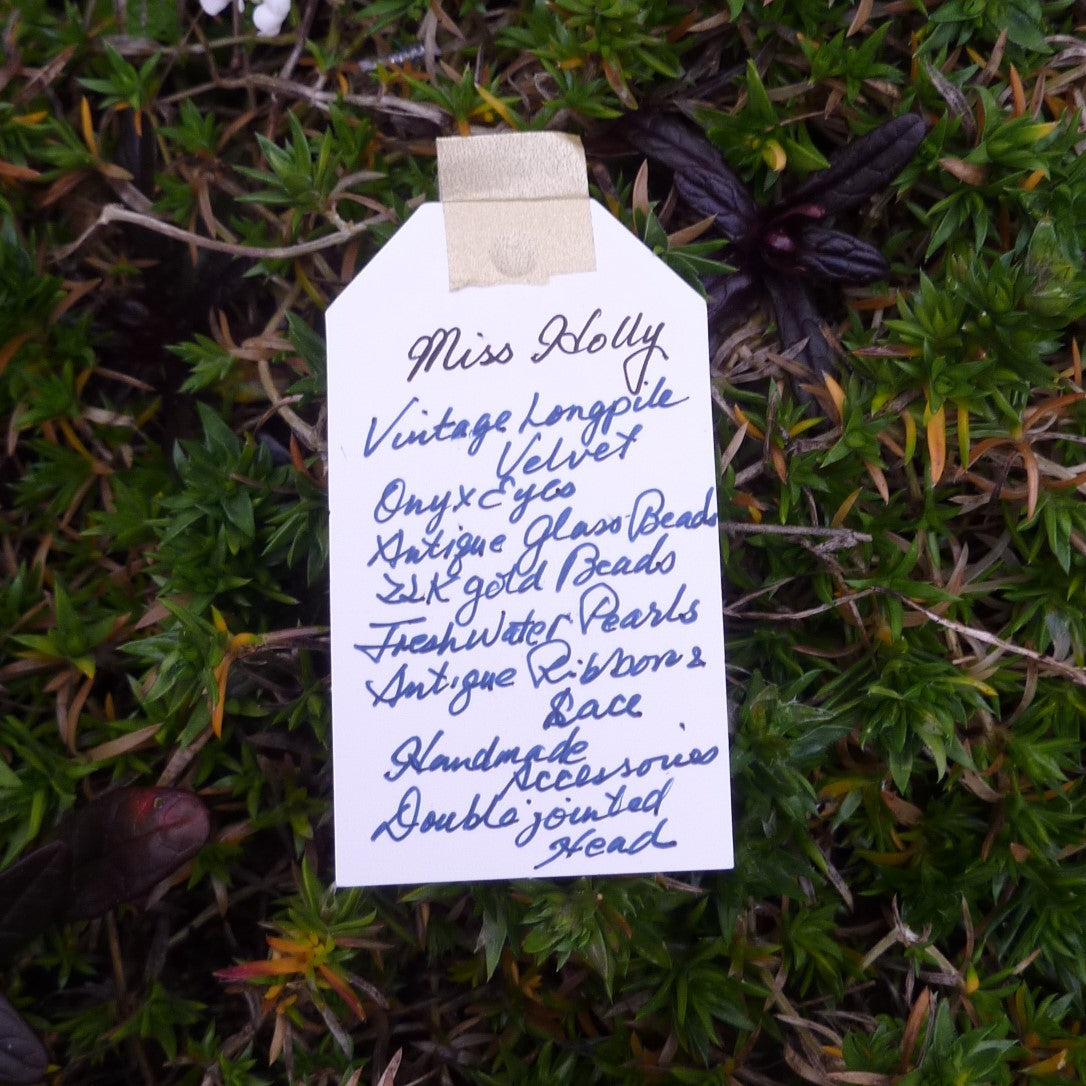 Miss Holly
Vintage Longpile
Velvet
Onyx Eyes
Antique Glass Beads
22K gold Beads
FreshWater Pearls
Antique Ribbon &
Lace
Handmade
Accessories
Double jointed
Head